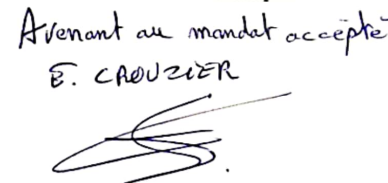 Avenant au mandat accepté
E. CROUZIER